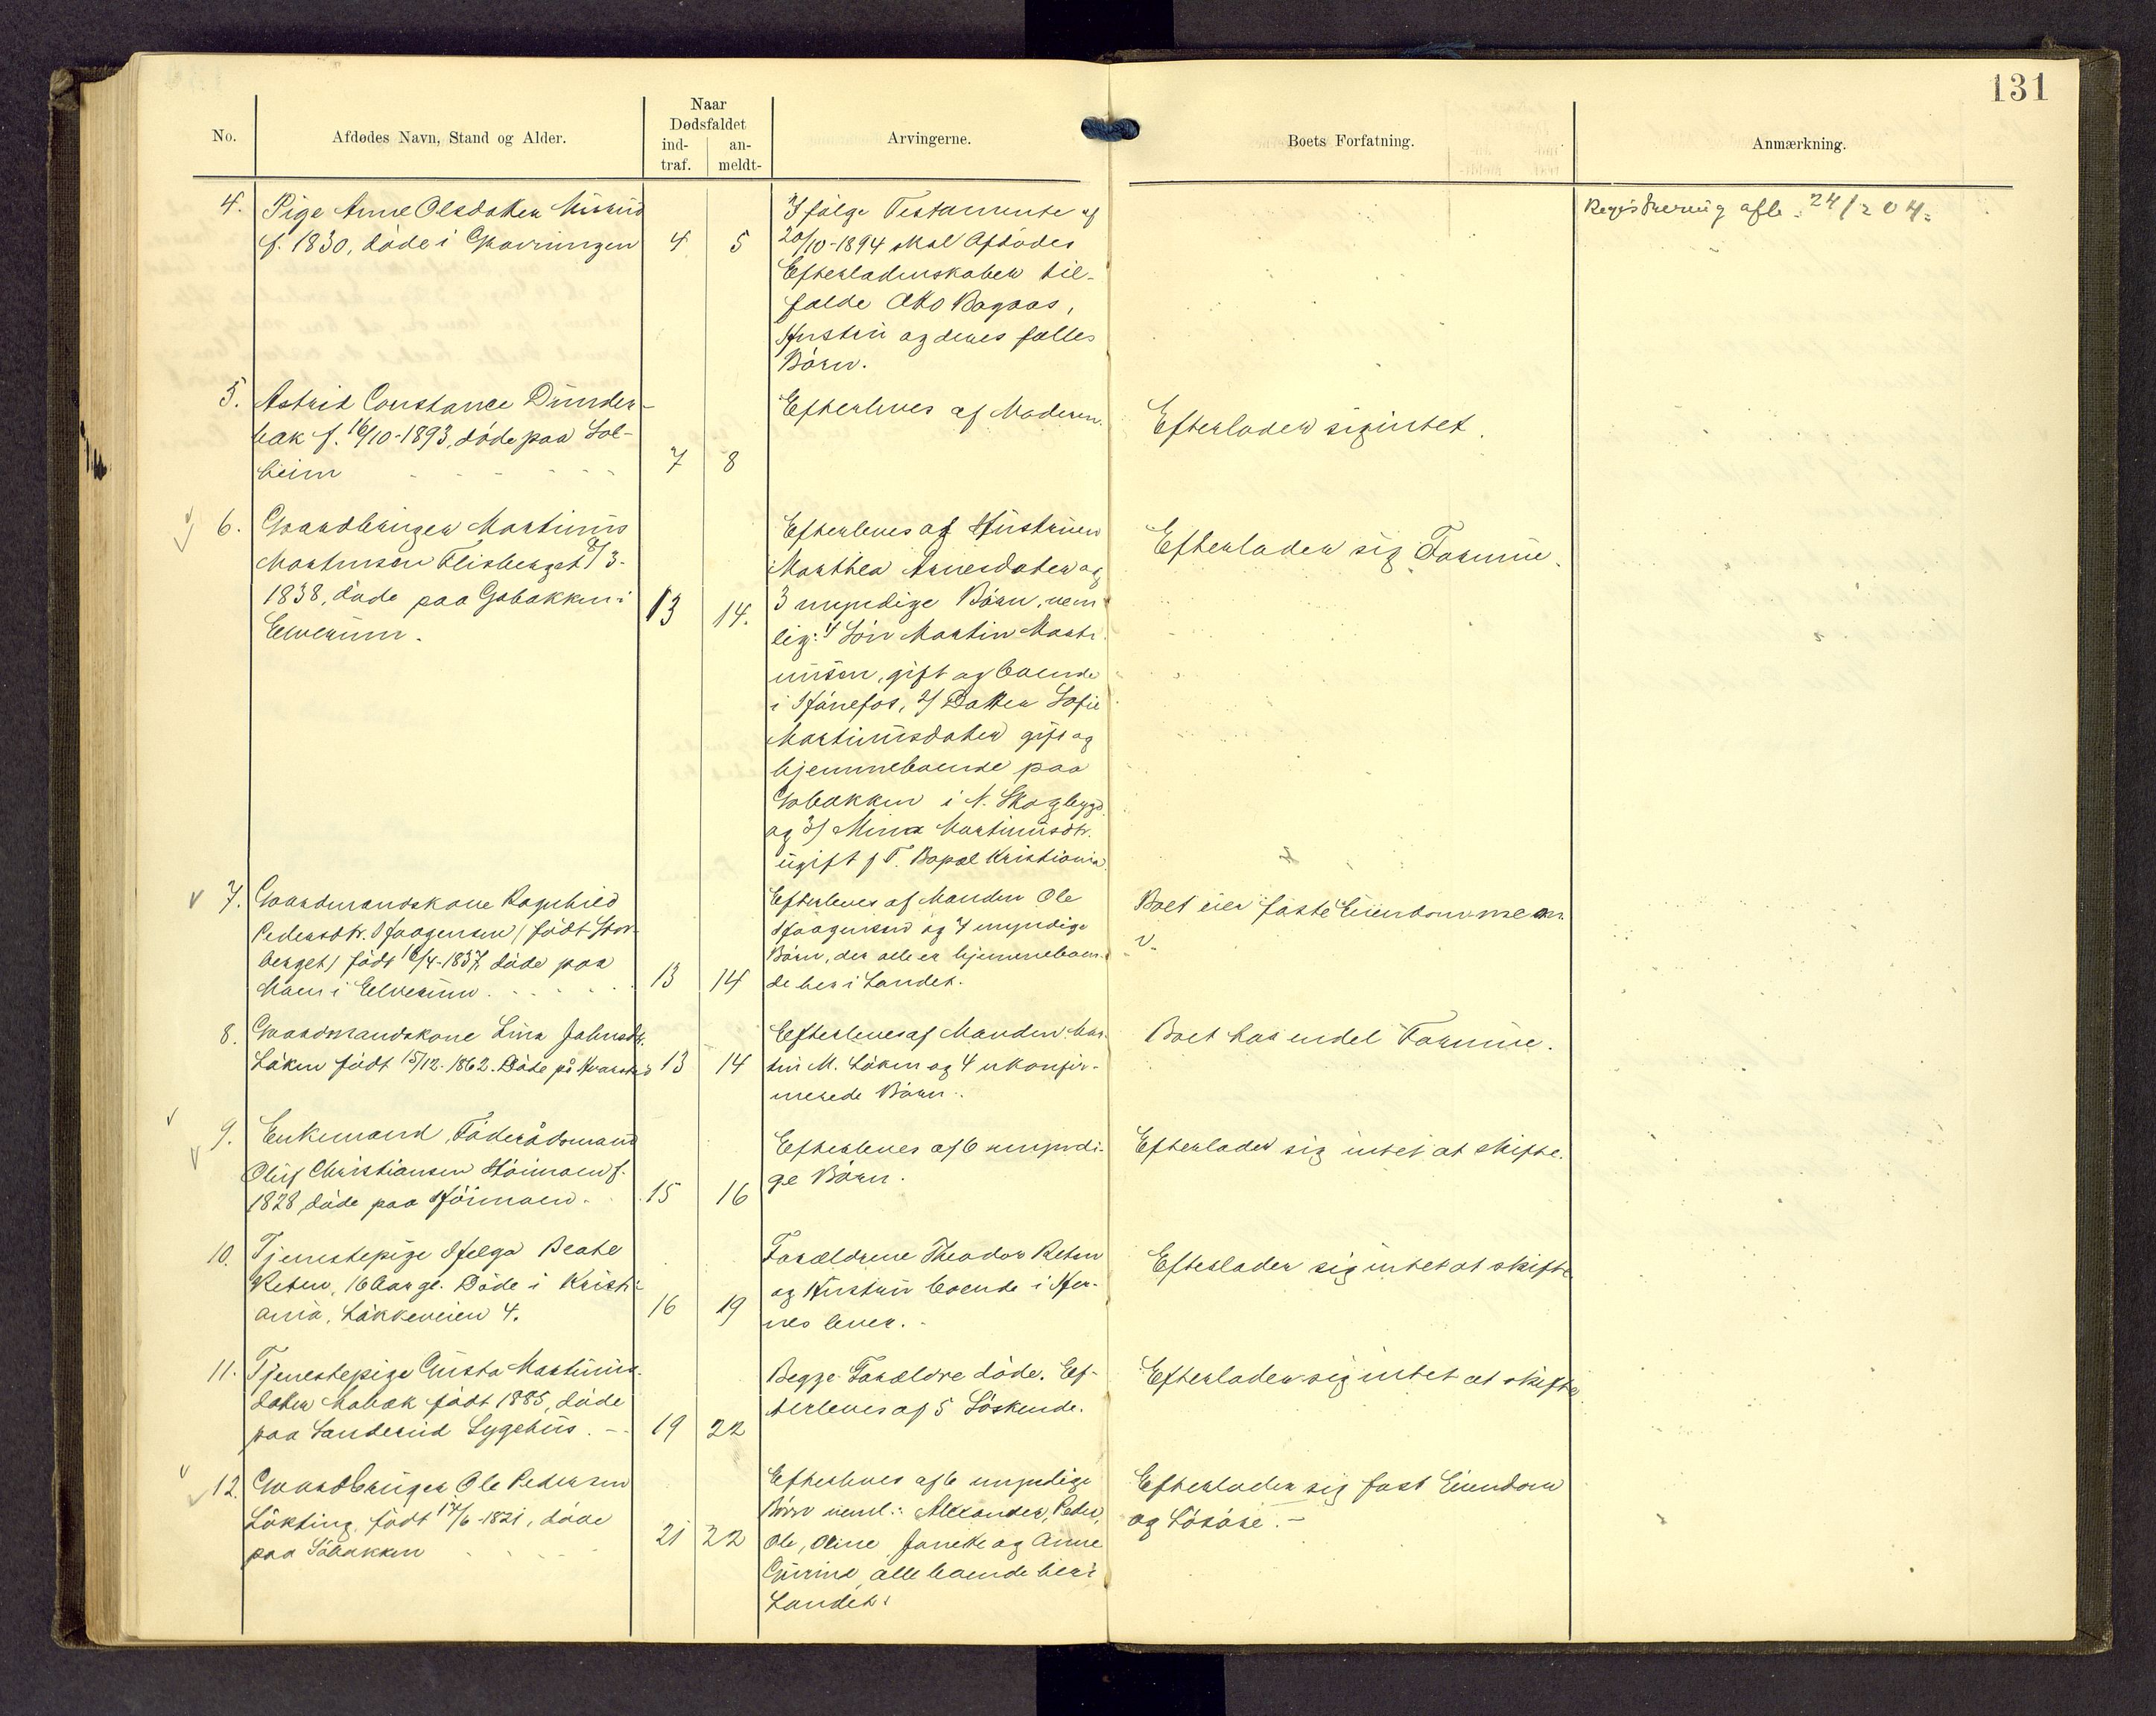 131
No.
Afdødes Navn, Stand og Alder.
Naar
Dødsfaldet
ind-
traf.
an-
meldt-
Arvingerne.
Boets Forfatning.
Anmærkning.
4.
Pige Anne Olsdatter
f. 1830, døde i
4
5
I følge Testamente af
20/10-1894 skal Afdødes
Efterladenskaber til-
falde Otto Bagaas,
Hustru og deres fælles
Børn.
Registrering afh. 24/2 04.
5.
Astrid Constance Dunder-
bak f. 16/10-1893, døde paa Sol-
heim
7
8
Efterleves af Moderen.
Efterlader sig intet.
6.
Gaardbruger Martinus
Martinsen Flisberget 8/3-
1838, døde paa Gobakken i
Elverum.
13
14.
Efterleves af Hustruen
Marthea Arnesdatter og
3 myndige Børn, nem-
lig: 1/ Søn Martin Marti-
nusen, gift og boende
i Hønefos, 2/ Datter Sofie
Martinusdatter gift og
hjemmeboende paa
Gobakken i N. Skogbygd
og 3/ Mina Martinusdtr.
ugift p. T. Bopæl Kristiania
Efterlader sig Formue.
7.
Gaardmandskone Ragnhild
Pedersdtr. Haagensen (født Stor-
berget) født 16/4-1837, døde paa
Moen i Elverum.
13
14
Efterleves af Manden Ole
Haagensen og 7 myndige
Børn, der alle er hjemmeboen-
de her i Landet.
Boet eier faste Eiendommer
8.
Gaardmandskone Lina Johnsdtr.
Løken født 15/12-1862. Døde på
13
14
Efterleves af Manden Mar-
tin M. Løken og 4 ukonfir-
merede Børn.
Boet har endel Formue.
9.
Enkemand, Føderådsmand
Oluf Christiansen Høimoen f.
1828 døde paa Høimoen.
15
16
Efterleves af 6 myndi-
ge Børn.
Efterlader sig intet at skifte.
10.
Tjenestepige Helga Beate
Reten, 16 Aar gl. Døde i Kristi-
ania, Løkkeveien 4.
16
19
Forældrene Theodor Reten
og Hustru boende i Her-
nes lever.
Efterlader sig intet at skifte
11.
Tjenestepige Gusta Martinus-
datter Mobæk født 1885, døde
paa Sanderud Sygehus.
19
22
Begge Forældre døde. Ef-
terleves af 5 Søskende.
Efterlader sig intet at skifte
12.
Gaardbruger Ole Pedersen
Løkting, født 17/6-1821, døde
paa Søbakken
21
22
Efterleves af 6 myndige
Børn neml.: Alexander, Peder,
Ole, Oline Janette og Anne
alle boende her i
Landet.
Efterlader sig fast Eiendom
og Løsøre.-